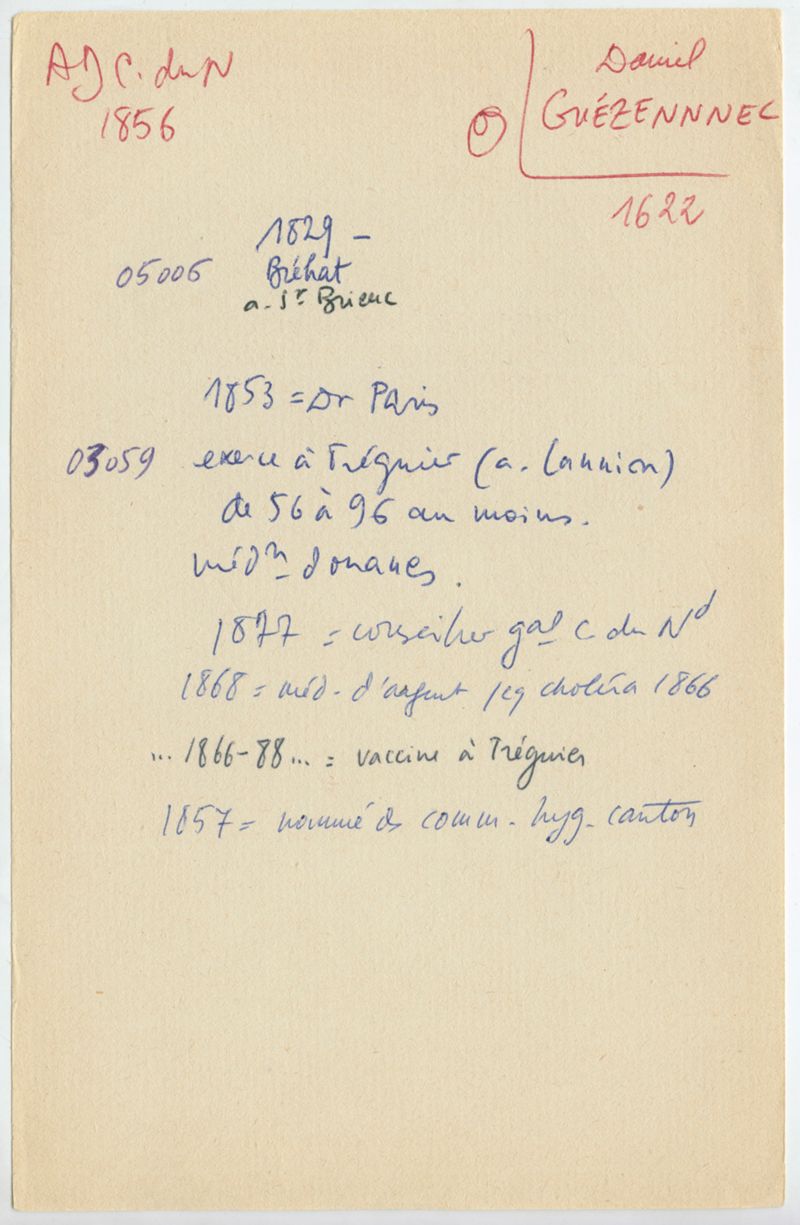 AD C. du N
1856
Daniel
GUÉZENNNEC
1622
1829 -
05006 Bréhat
a. St Brieuc
1853 = Dr Paris
03059 exerce à Tréguier (a. Lannion)
de 56 à 96 au moins.
médn douanes.
1877 = conseiller gal C. du Nd
1868 = méd. d'argent choléra 1866
... 1866-88... = vaccine à Tréguier
1857 = nommé ds comm. hyg. canton